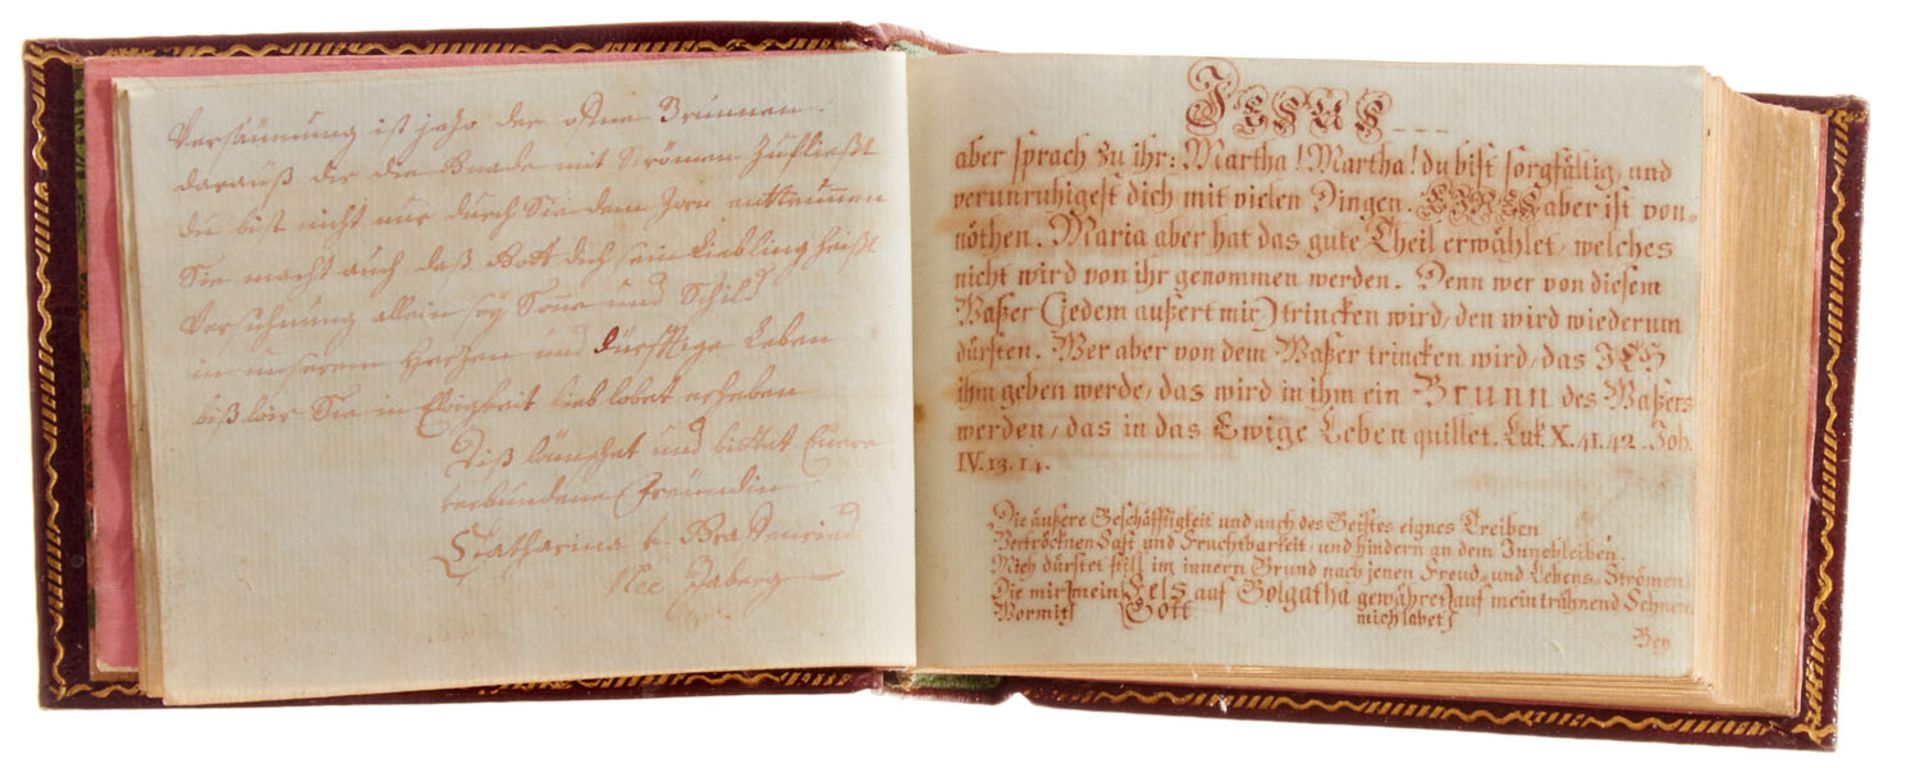 Versöhnung ist jezo der ofne Brunnen.
darauß dir die Gnade mit Strömen Zufließt
du bist nicht nur durch Sie dem Zorn enttrunnen
Sie macht auch daß Gott dich sein Liebling heißt
Versöhnung allein sey Sonne und Schild
in unserem Herzen und dürfftige Leben
biß wir Sie in Ewigkeit lieb lobet erheben
Diß wünschet und bittet Euere
verbundene Freündin
Catharina v. Graffenried
Née Jaberg
JESUS
aber sprach zu ihr: Martha! Martha! du bist sorgfältig, und
verunruhigest dich mit vielen Dingen. EINES aber ist von-
nöthen. Maria aber hat das gute Theil erwählet, welches
nicht wird von ihr genommen werden. Denn wer von diesem
Waßer (jedem außert mir) trincken wird, den wird wiederum
dürsten. Wer aber von dem Waßer trincken wird, das ICH
ihm geben werde, das wird in ihm ein Brunn des Waßers
werden, das in das Ewige Leben quillet. Luk. X. 41. 42. Joh.
IV. 13. 14.
Die äußere Geschäfftigkeit und auch des Geistes eignes Treiben
Vertröcknen Saft und Fruchtbarkeit, und hindern an dem Innebleiben.
Mich dürstet still im innern Grund nach jenen Freud- und Lebens-Strömen
Die mir mein Fels auf Golgatha gewähret auf mein trähnend Sehnen
Wormit Gott mich labet
Bey